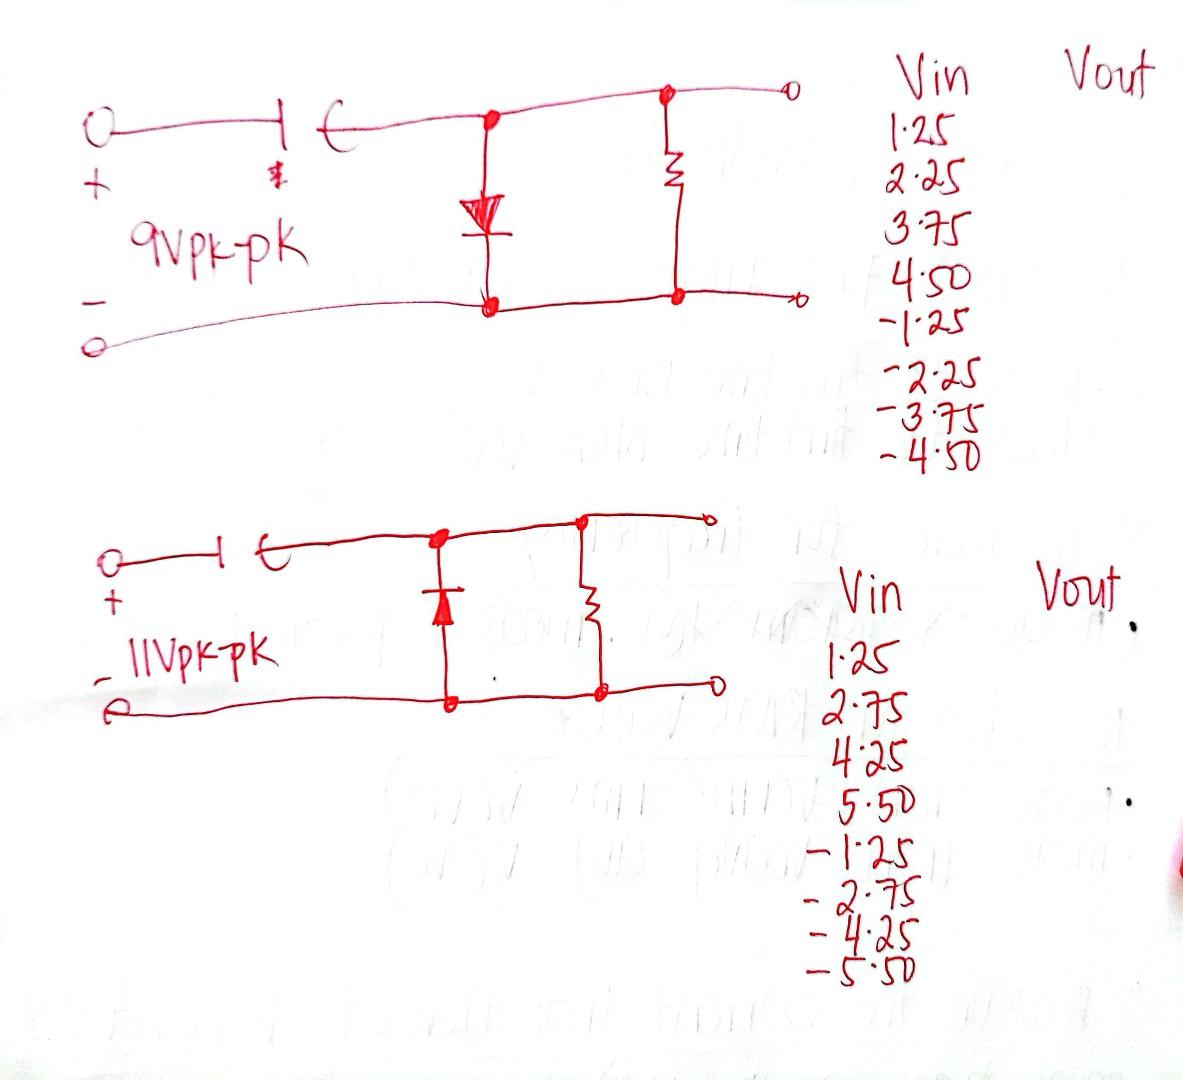 Vin Vout
1.25
2.25
3.75
4.50
-1.25
-2.25
-3.75
-4.50
+
9Vpk-pk
-
Vin Vout
1.25
2.75
4.25
5.50
-1.25
-2.75
-4.25
-5.50
+
11Vpk-pk
-